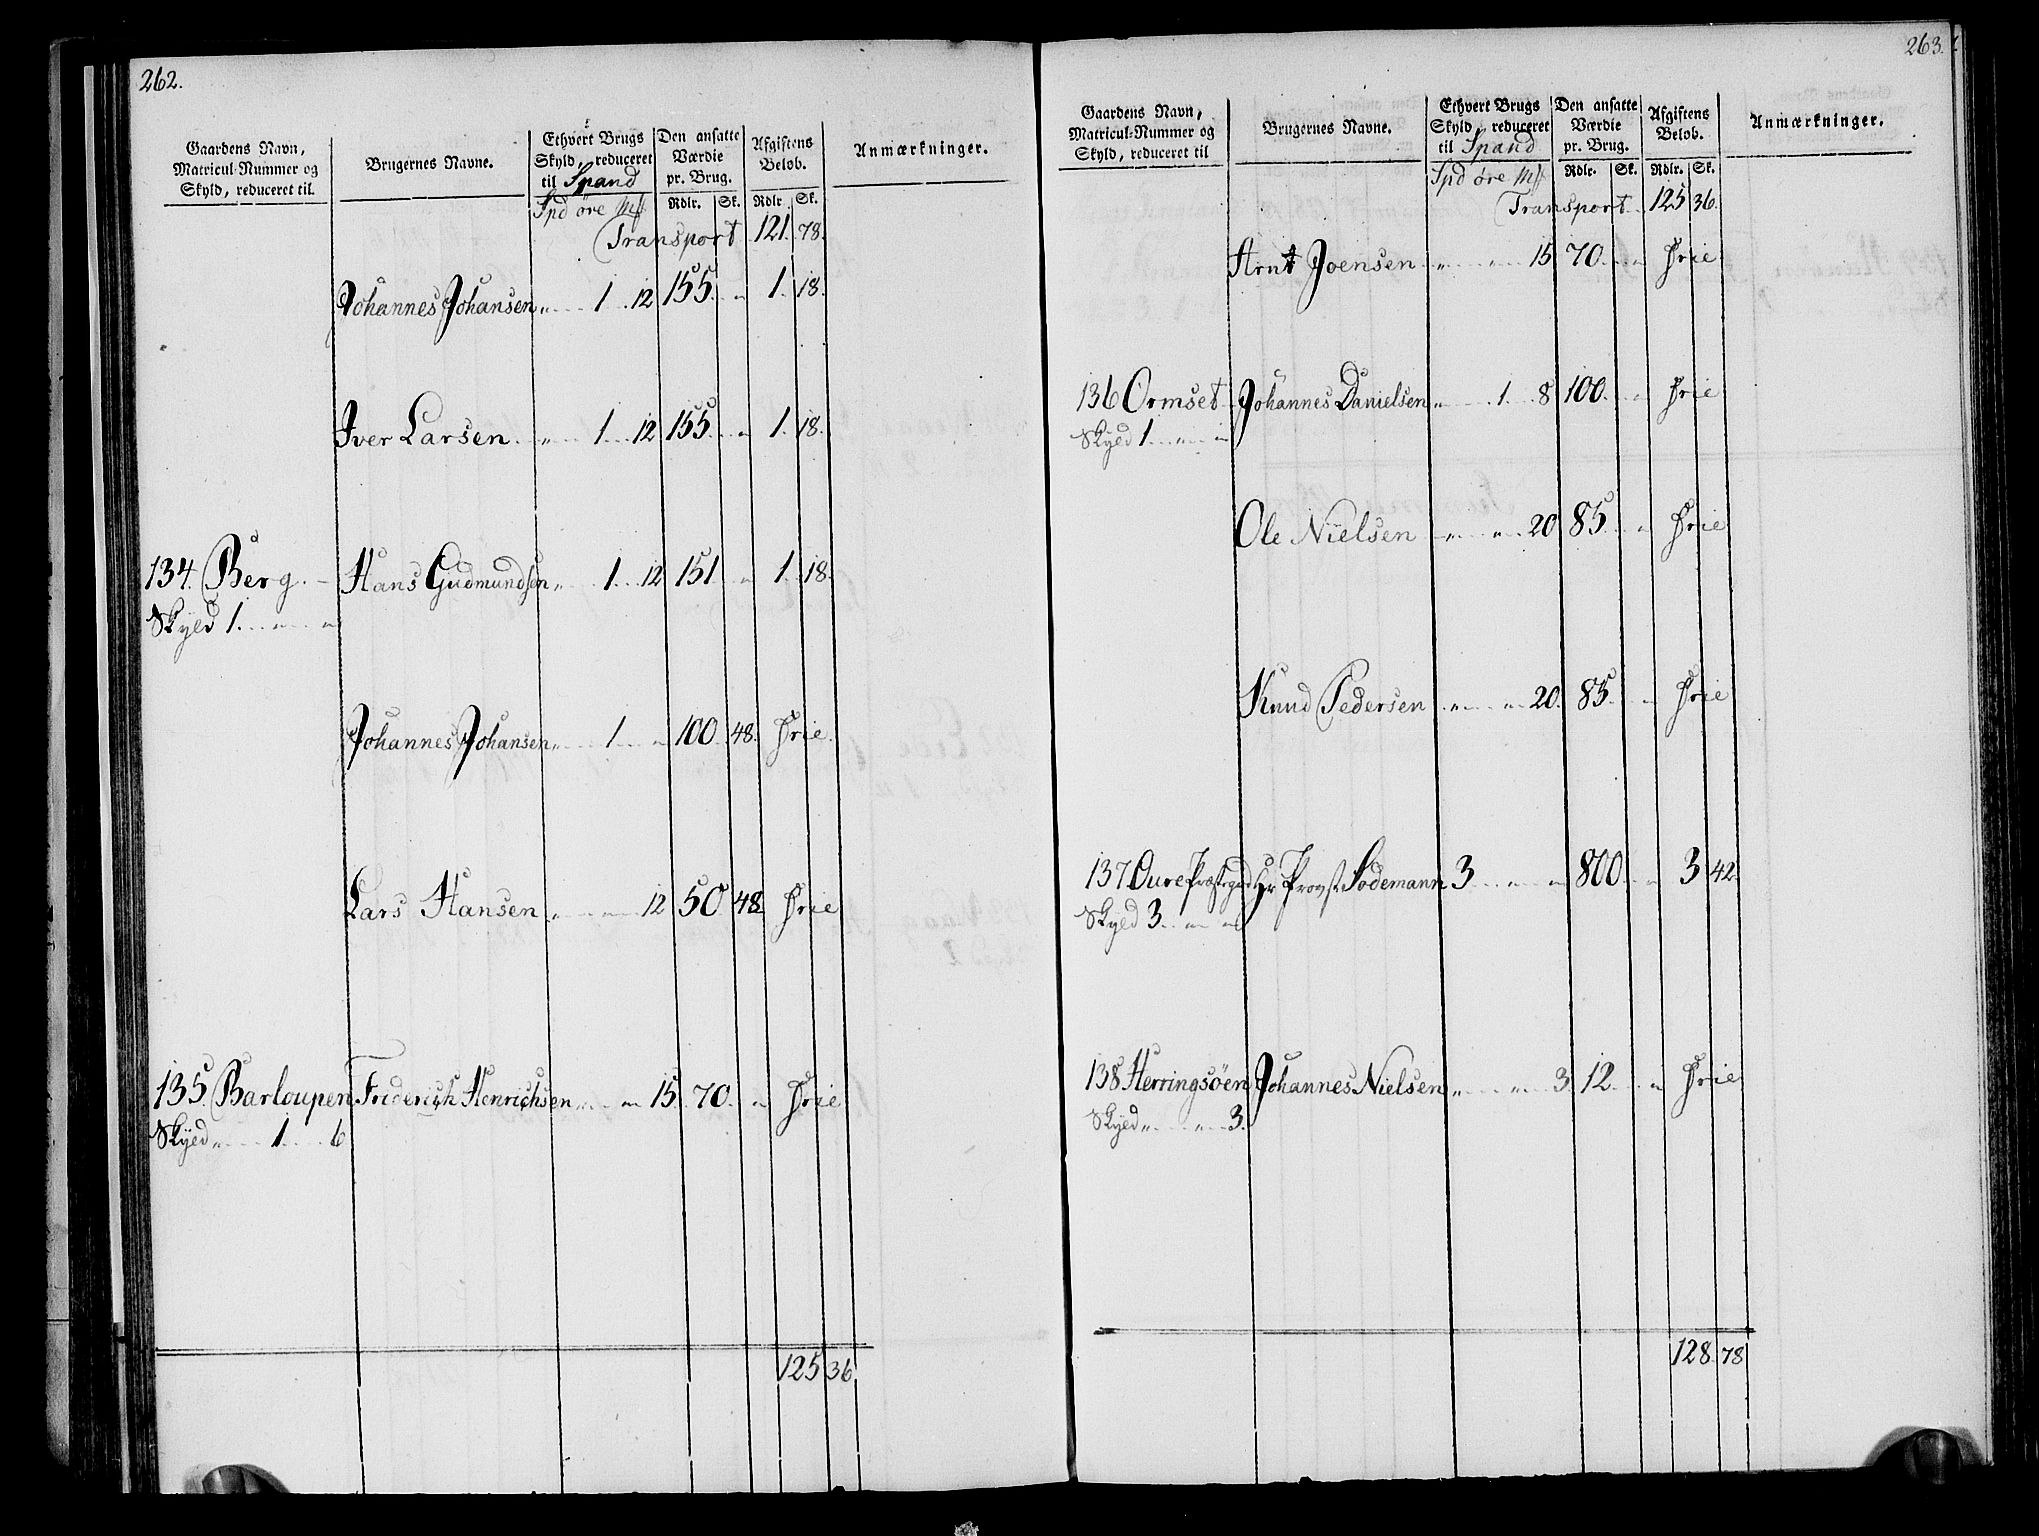 262.
Gaardens Navn, Matricul-Nummer og Skyld, reduceret til. | Brugernes Navne. | Ethvert Brugs Skyld, reduceret til Spand | Den ansatte Værdie pr. Brug. | Afgiftens Beløb. | Anmærkninger.
Spd øre | Rdlr. | Sk. | Rdlr. | Sk.
Transport 121. 78.
Johannes Johansen „ 1 12 155. „ 1. 18.
Iver Larsen „ 1 12 155 „ 1. 18.
134. Berg. Hans Gudmundsen „ 1. 12 151 „ 1. 18.
Skyld 1. „ „
Johannes Johansen „ 1 „ 100 48. Frie.
Lars Hansen „ „ 12 50 48 Frie
135. Barloupen Friderich Henrichsen „ „ 15. 70. „ Frie
Skyld „ 1 6
125 36
263.
Gaardens Navn, Matricul-Nummer og Skyld, reduceret til | Brugernes Navne. | Ethvert Brugs Skyld, reduceret til Spand | Den ansatte Værdie pr. Brug. | Afgiftens Beløb. | Anmærkninger.
Spd øre | Rdlr. | Sk. | Rdlr. | Sk.
Transport 125 36.
Arnt Joensen „ „ 15 70. „ Frie
136 Ormset Johannes Danielsen „ 1. 8 100. „ Frie
Skyld 1 „ „
Ole Nielsen „ „ 20 85. „ Frie
Knud Pedersen „ „ 20. 85. „ Frie
137. Oure Hr Provst Sodemann 3 „ „ 800. „ 3 42
Skyld 3. „ „
138. Herringsøen Johannes Nielsen „ „ 3 12. „ Frie
Skyld „ „ 3.
128. 78